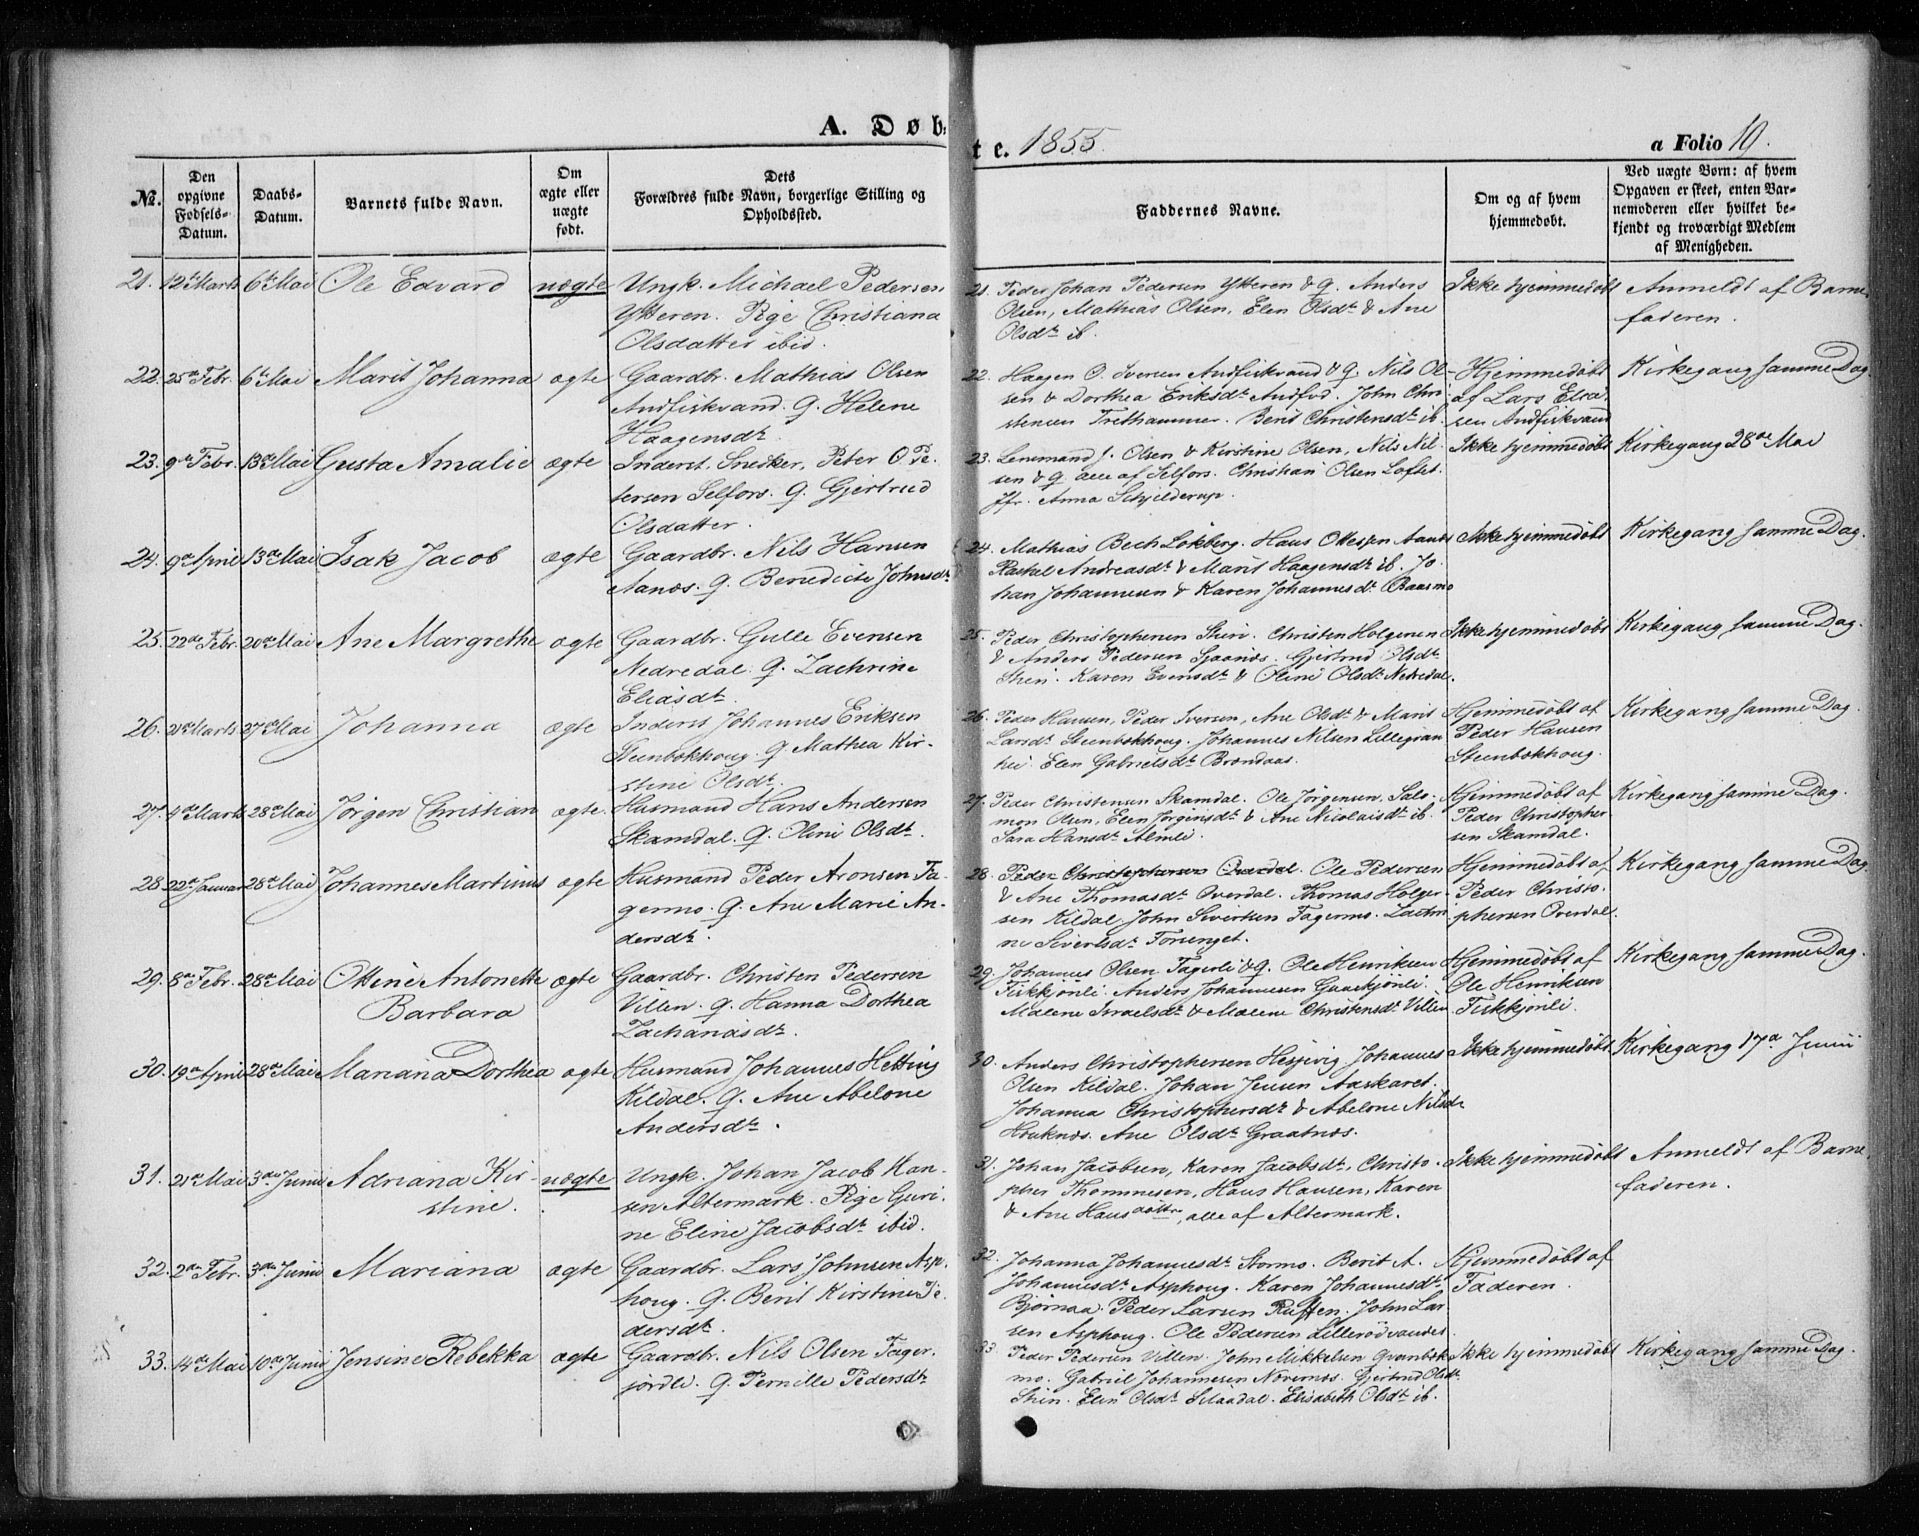 A. Døb-
te. 1855.
a Folio 19.
No.
Den opgivne Fødsels-Datum.
Daabs-Datum.
Barnets fulde Navn.
Om ægte eller uægte født.
Dets Forældres fulde Navn, borgerlige Stilling og Opholdssted.
Faddernes Navne.
Om og af hvem hjemmedøbt.
Ved uægte Børn: af hvem Opgaven er skeet, enten Barnemoderen eller hvilket bekjendt og troværdigt Medlem af Menigheden.
21. 12te Marts 6te Mai Ole Edvard uægte Ungk. Michael Pedersen
Ytteren. Pige Christiana
Olsdatter ibid.
21. Peder Johan Pedersen Ytteren & q. Anders
Olsen, Mathias Olsen, Elen Olsdr & Ane
Olsdr ib.
Ikke hjemmedøbt
Anmeldt af Barne-
faderen.
22. 25de Febr. 6te Mai Marit Johanna ægte Gaardbr. Mathias Olsen
Andfiskvand. q. Helene
Haagensdr.
22. Haagen O. Iversen Andfiskvand & q. Nils Ol-
sen & Dorthea Eriksdr Andfvd. John Chri-
stensen Trethammer. Berit Christensdr ib.
Hjemmedøbt
af Lars
sen Andfiskvand
Kirkegang samme Dag.
23. 9de Febr. 13de Mai Gusta Amalie ægte Inderst. Snedker, Peter O. Pe-
tersen Selfors. q. Gjertrud
Olsdatter.
23. Lensmand J. Olsen & Kirstine Olsen, Nils Nil-
sen & q. alle af Selfors. Christian Olsen Loftet.
Jfr. Anna Schjelderup.
Ikke hjemmedøbt
Kirkegang 28de Mai
24. 9de April 13de Mai Isak Jacob ægte Gaardbr. Nils Hansen
Aanæs. q. Benedicte Johnsdr
24. Mathias Bech Løkberg. Hans Ottesen Aanæs
Andreasdr & Marit Haagensdr ib. Jo-
han Johannesen & Karen Johannesdr Baasmo
Ikke hjemmedøbt
Kirkegang samme Dag.
25. 22de Febr. 20de Mai Ane Margrethe ægte Gaardbr. Gulle Evensen
Nedredal. q. Zachrine
Eliasdr.
25. Peder Christophersen Stien. Christen Holgersen
& Anders Pedersen Sjaanæs. Gjertrud Olsdr
Stien. Karen Evensdr & Oline Olsdr Nedredal.
Ikke hjemmedøbt
Kirkegang samme Dag.
26. 21de Marts. 27de Mai Johanna ægte Inderst Johannes Eriksen
Steenbokhoug. q. Mathea Kir-
stine Olsdr.
26. Peder Hansen, Peder Iversen, Ane Olsdr & Marit
Larsdr Steenbokhoug. Johannes Nilsen Lillegran-
hei. Elen Gabrielsdr Brændaas.
Hjemmedøbt af
Peder Hansen
Steenbokhoug.
Kirkegang samme Dag.
27. 4de Marts 28de Mai Jørgen Christian ægte. Husmand Hans Andersen
Skamdal. q. Oline Olsdr.
27. Peder Christensen Skamdal. Ole Jørgensen. Salo-
mon Olsen, Elen Jørgensdr & Ane Nicolaisdr ib.
Sara Hansdr Almli.
Hjemmedøbt af
Peder Christopher-
sen Skamdal.
Kirkegang samme Dag.
28. 22de Januar 28de Mai Johannes Martinus ægte Husmand Peder Aronsen Fa-
germo. q. Ane Marie An-
dersdr.
28. Peder Christophersen Overdal. Ole Pedersen
& Ane Thomasdr Overdal. Thomas Holger-
sen Kildal. John Sivertsen Fagermo. Zachri-
ne Sivertsdr Forsenget.
Hjemmedøbt af
Peder Christo-
phersen Overdal.
Kirkegang samme Dag
29. 8de Febr. 28de Mai Ottine Antonette
Barbara
ægte Gaardbr. Christen Pedersen
Villen. q. Hanna Dorthea
Zachariasdr.
29. Johannes Olsen Fagerli & q. Ole Henriksen
Fiskkjønli. Anders Johannesen Gaaskjønli.
Malene Israelsdr & Malene Christensdr Villen
Hjemmedøbt af
Ole Henriksen
Fiskkjønli.
Kirkegang samme Dag.
30. 19de April 28de Mai Mariana Dorthea ægte Husmand Johannes Hetting
Kildal. q. Ane Abelone
Andersdr.
30. Anders Christophersen Hesjevig. Johannes
Olsen Kildal. Johan Jensen Aaskaret.
Johanna Christophersdr & Abelone Nilsdr
Houknæs. Ane Olsdr Graatnæs.
Ikke hjemmedøbt
Kirkegang 17de Junii
31. 21de Mai 3die Junii Adriana Kir-
stine.
uægte Ungk. Johan Jacob Han-
sen Altermark. Pige Guri-
ne Eline Jacobsdr ibid.
31. Johan Jacobsen, Karen Jacobsdr, Christo-
pher Thommesen, Hans Hansen, Karen
& Ane Hansdøttre, alle af Altermark.
Ikke hjemmedøbt
Anmeldt af Barne-
faderen.
32. 2den Febr. 3die Junii Mariana ægte Gaardbr. Lars Johnsen Asp-
houg. q. Berit Kirstine Pe-
dersdr.
32. Johanna Johannesdr Stormo. Berit A.
Johannesdr Asphoug. Karen Johannesdr
Bjørnaa. Peder Larsen Røssen. John Lar-
sen Asphoug. Ole Pedersen Lillerødvandet.
Hjemmedøbt af
Faderen.
33. 14de Mai 10de Junii Jensine Rebekka ægte Gaardbr. Nils Olsen Fager-
jordli. q. Pernille Pedersdr
33. Peder Pedersen Villen. John Mikkelsen Qvanbek-
mo. Gabriel Johannesen Nævernæs. Gjertrud Olsdr
Stien. Elen Olsdr Silaadal. Elisabeth Olsdr ib.
Ikke hjemmedøbt
Kirkegang samme Dag.